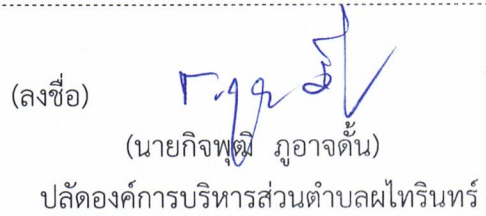 (ลงชื่อ)
(นายกิจพุฒิ ภูอาจดั้น)
ปลัดองค์การบริหารส่วนตำบลผไทรินทร์